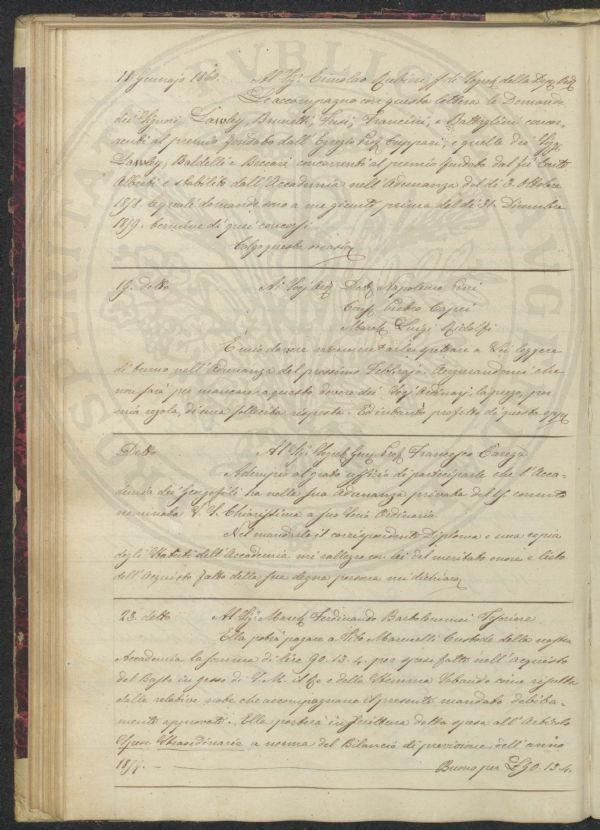 11 Gennajo 1860. Al Sig. Cremlao Rubieri f.f. di Segret. della Dep.
Le accompagno con questa lettera le Domande
dei Signori Lawley, Brunetti, Susi, Franceschi, e Battaglini concor-
renti al premio fondato dall' Egregio Prof. Cuppari, e quelle dei Sigg.
Lawley, Baldelli e Beccari concorrenti al premio fondato dal fu Conte
Alberti e stabilito dall' Accademia nell' Adunanza del dì 3. Ottobre
1858 le quali domande sono a me giunte prima del dì 31. Dicembre
1859. termine di quei concorsi.
Colgo questa occasione
19. detto Ai Sigg. Dott. Napoleone Pini
Cav. Pietro Capei
March. Luigi Ridolfi
È mio dovere rammentarle spettare a Voi leggere
di turno nell' Adunanza del prossimo Febbrajo. Assicurandomi che
non sarà per mancare a questo dovere dei Sigg. Ordinarj, la prego, per
mia regola, di una sollecita risposta. Ed intanto profitto di questa
Detto Al Sig. Segret. Gen. Prof. Francesco Carega
Adempio al grato uffizio di parteciparle che l' Acca-
demia dei Georgofili ha nella sua Adunanza privata del 15 corrente
nominato V. S. Chiarissima a suo Socio Ordinario.
Nel mandarle il corrispondente Diploma e una copia
degli Statuti dell' Accademia mi rallegro con lei del meritato onore e lieto
dell' Acquisto fatto della sua degna persona mi dichiaro
23. detto Al Sig. March. Ferdinando Bartolommei Tesoriere
Ella potrà pagare a Tito Marucelli Custode della nostra
Accademia la somma di lire 90. 13. 4. per spese fatte nell' acquisto
del Busto in gesso di S. M. il Re e dello Stemma Sabaudo come risulta
dalle relative note che accompagnano il presente mandato debita-
mente approvati. Ella porterà in Scrittura detta spesa all' Articolo
Spese Straordinarie a norma del Bilancio di previsione dell' anno
1859. — Buono per L. 90. 13. 4.